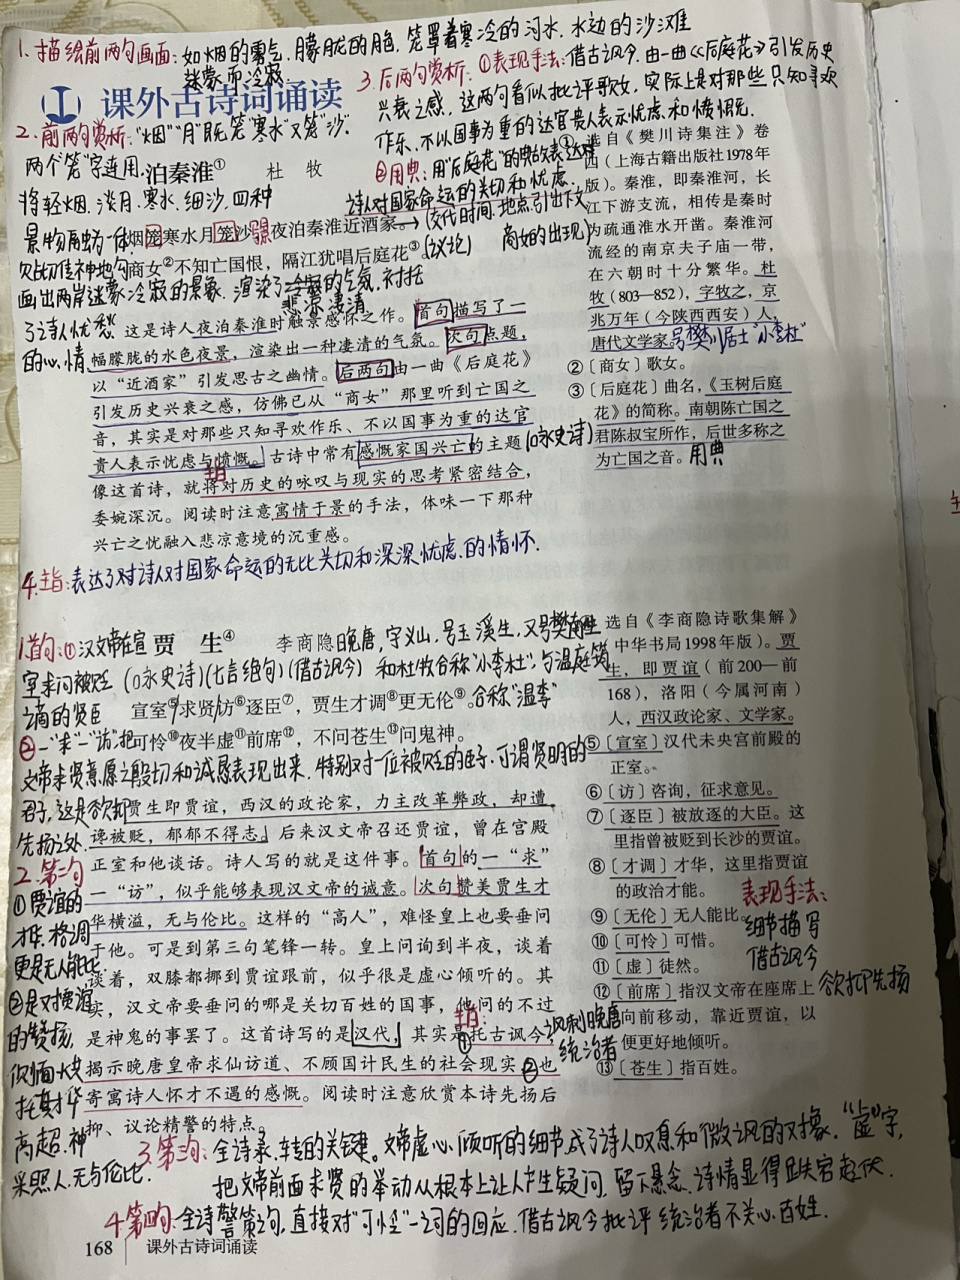 1.描绘前两句画面：如烟的雾气，朦胧的月色，笼罩着寒冷的河水，水边的沙滩
迷蒙而冷寂
3.后两句赏析：①表现手法：借古讽今，由一曲《后庭花》引发历史
兴衰之感，这两句看似批评歌女，实际上是对那些只知寻欢
作乐、不以国事为重的达官贵人表示忧虑和愤慨。
②用典：用"后庭花"的典故表达对
诗人对国家命运的关切和忧虑。
课外古诗词诵读
2.前两句赏析："烟""月"既无笼"寒水"又笼"沙"
两个"笼"字连用，
将轻烟、淡月、寒水、细沙四种
景物融为一体
泊秦淮①
杜 牧
烟笼寒水月笼沙，夜泊秦淮近酒家。→(交代时间、地点引出下文
商女的出现)
商女②不知亡国恨，隔江犹唱后庭花③。(议论)
画出两岸迷蒙冷寂的景象，渲染了冷寂的气氛，衬托
悲凉凄清
了诗人忧愁
的心情
这是诗人夜泊秦淮时触景感怀之作。首句描写了一
幅朦胧的水色夜景，渲染出一种凄清的气氛。次句点题，
以“近酒家”引发思古之幽情。后两句由一曲《后庭花》
引发历史兴衰之感，仿佛已从“商女”那里听到亡国之
音，其实是对那些只知寻欢作乐、不以国事为重的达官
贵人表示忧虑与愤慨。古诗中常有感慨家国兴亡的主题(咏史诗)
主旨
像这首诗，就将对历史的咏叹与现实的思考紧密结合，
委婉深沉。阅读时注意寓情于景的手法，体味一下那种
兴亡之忧融入悲凉意境的沉重感。
4.主旨：表达了对诗人对国家命运的无比关切和深深忧虑的情怀．
①选自《樊川诗集注》卷
四（上海古籍出版社1978年
版）。秦淮，即秦淮河，长
江下游支流，相传是秦时
为疏通淮水开凿。秦淮河
流经的南京夫子庙一带，
在六朝时十分繁华。杜
牧（803—852），字牧之，京
兆万年（今陕西西安）人，
唐代文学家。号樊川居士"小李杜"
②〔商女〕歌女。
③〔后庭花〕曲名，《玉树后庭
花》的简称。南朝陈亡国之
君陈叔宝所作，后世多称之
为亡国之音。用典
1.首句：①汉文帝在宣
室求问被贬
之谪的贤臣
贾 生④
李商隐晚唐，字义山，号玉溪生，又号樊南生
(咏史诗)(七言绝句)(借古讽今) 和杜牧合称"小李杜"，与温庭筠
合称"温李"
宣室⑤求贤访⑥逐臣⑦，贾生才调⑧更无伦⑨。
可怜⑩夜半虚⑪前席⑫，不问苍生⑬问鬼神。
②一"求"一"访"，把
文帝求贤意愿之殷切和诚恳表现出来，特别对一位被贬的臣子，可谓贤明的
君子，这是欲抑
先扬之处．
贾生即贾谊，西汉的政论家，力主改革弊政，却遭
谗被贬，郁郁不得志。后来汉文帝召还贾谊，曾在宫殿
正室和他谈话。诗人写的就是这件事。首句的一“求”
一“访”，似乎能够表现汉文帝的诚意。次句赞美贾生才
华横溢，无与伦比。这样的“高人”，难怪皇上也要垂问
于他。可是到第三句笔锋一转。皇上问询到半夜，谈着
谈着，双膝都挪到贾谊跟前，似乎很是虚心倾听的。其
实，汉文帝要垂问的哪是关切百姓的国事，他问的不过
主旨：
是神鬼的事罢了。这首诗写的是汉代，其实是①托古讽今，讽刺晚唐
统治者
揭示晚唐皇帝求仙访道、不顾国计民生的社会现实②也
寄寓诗人怀才不遇的感慨。阅读时注意欣赏本诗先扬后
抑、议论精警的特点。
2.第二句
①贾谊的
才华、格调
更是无人能比
②是对贾谊
的赞扬，
高超、神
采照人，无与伦比．
选自《李商隐诗歌集解》
中华书局1998年版）。贾
生，即贾谊（前200—前
168），洛阳（今属河南）
人，西汉政论家、文学家。
⑤〔宣室〕汉代未央宫前殿的
正室。
⑥〔访〕咨询，征求意见。
⑦〔逐臣〕被放逐的大臣。这
里指曾被贬到长沙的贾谊。
⑧〔才调〕才华，这里指贾谊
的政治才能。
⑨〔无伦〕无人能比。
⑩〔可怜〕可惜。
⑪〔虚〕徒然。
⑫〔前席〕指汉文帝在座席上
向前移动，靠近贾谊，以
便更好地倾听。
⑬〔苍生〕指百姓。
表现手法：
细节描写
借古讽今
欲抑先扬
3.第三句：全诗承、转的关键。文帝虚心倾听的细节成了诗人叹息和微讽的对象．"虚"字，
把文帝前面求贤的举动从根本上让人产生疑问，留下悬念，诗情显得跌宕起伏．
4.第四句：全诗警策之句，直接对"可怜"一词的回应，借古讽今批评统治者不关心百姓．
168 课外古诗词诵读